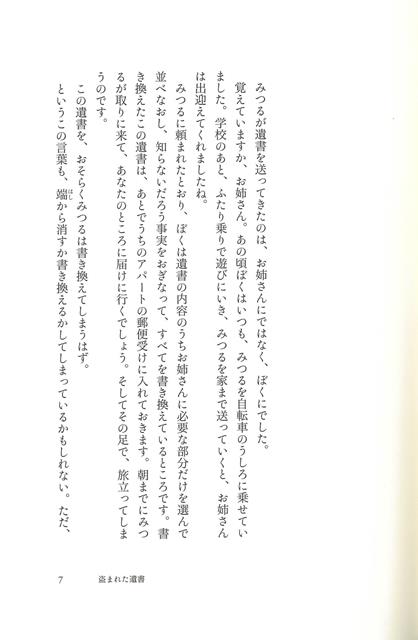 みつるが遺書を送ってきたのは、お姉さんにではなく、ぼくにでした。
覚えていますか、お姉さん。あの頃ぼくはいつも、みつるを自転車のうしろに乗せてい
ました。学校のあと、ふたり乗りで遊びにいき、みつるを家まで送っていくと、お姉さん
は出迎えてくれましたね。
みつるに頼まれたとおり、ぼくは遺書の内容のうちお姉さんに必要な部分だけを選んで
並べなおし、知らないだろう事実をおぎなって、すべてを書き換えているところです。書
き換えたこの遺書は、あとでうちのアパートの郵便受けに入れておきます。朝までにみつ
るが取りに来て、あなたのところに届けに行くでしょう。そしてその足で、旅立ってしま
うのです。
この遺書を、おそらくみつるは書き換えてしまうはず。
というこの言葉も、端から消すか書き換えるかしてしまっているかもしれない。ただ、
はし
7 盗まれた遺書